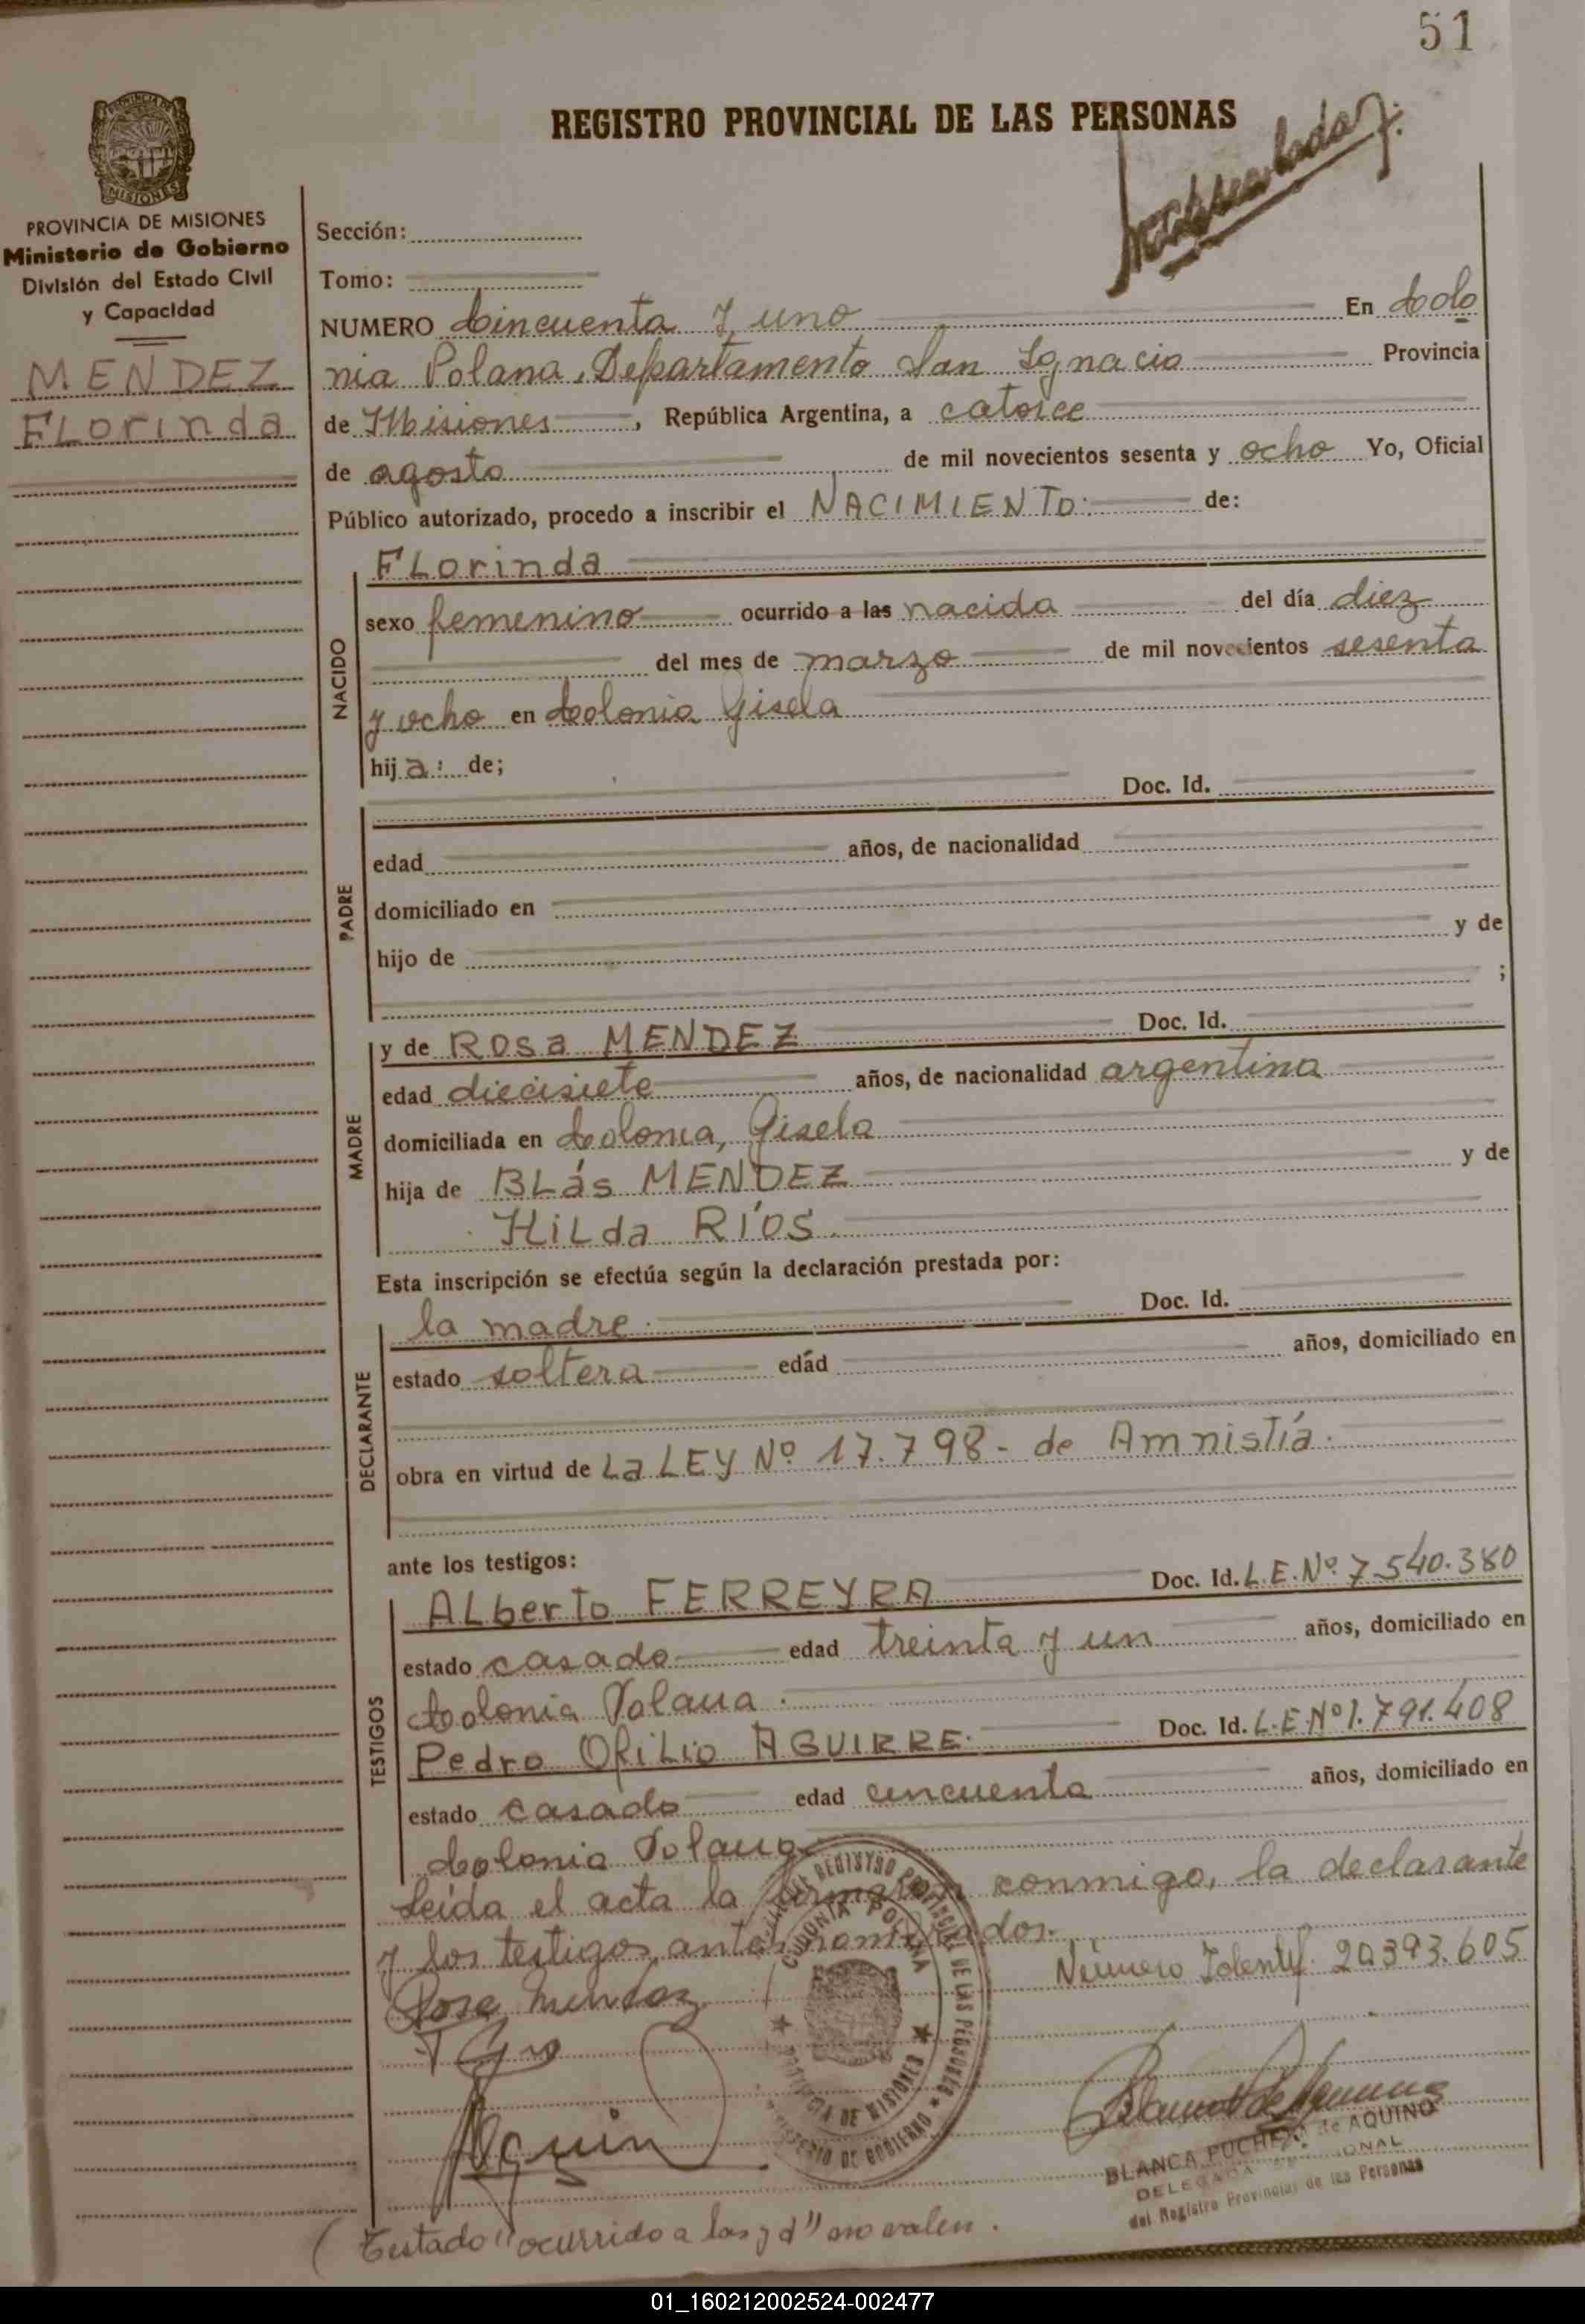 51
REGISTRO PROVINCIAL DE LAS PERSONAS
PROVINCIA DE
MISIONES
PROVINCIA DE MISIONES
Ministerio de Gobierno
División del Estado Civil
y Capacidad
MENDEZ
Florinda
Sección:
Tomo:
NUMERO Cincuenta y uno En Colo
nia Polana, Departamento San Ignacio Provincia
de Misiones, República Argentina, a catorce
de agosto de mil novecientos sesenta y ocho Yo, Oficial
Público autorizado, procedo a inscribir el NACIMIENTO: de:
NACIDO
Florinda
sexo femenino ocurrido a las nacida del día diez
del mes de marzo de mil novecientos sesenta
y ocho en Colonia Gisela
hija: de;
PADRE
Doc. Id.
edad años, de nacionalidad
domiciliado en
hijo de y de
;
MADRE
y de Rosa MENDEZ Doc. Id.
edad diecisiete años, de nacionalidad argentina
domiciliada en Colonia, Gisela
hija de BLás MENDEZ y de
HiLda RÍOS.
Esta inscripción se efectúa según la declaración prestada por:
DECLARANTE
la madre. Doc. Id.
estado soltera edad años, domiciliado en
obra en virtud de La LEY Nº 17.798- de Amnistía.
ante los testigos:
TESTIGOS
ALberto FERREYRA Doc. Id. L.E.Nº 7.540.380
estado casado edad treinta y un años, domiciliado en
Colonia Polana.
Pedro OfiLio AGUIRRE. Doc. Id. L.E Nº 1.791.408
estado casado edad cincuenta años, domiciliado en
Colonia Polana
Leída el acta la firmaron conmigo, la declarante
y los testigos antes nombrados.
Número Identif. 20.393.605
Rosa Mendez
REGISTRO PROVINCIAL DE LAS PERSONAS
COLONIA POLANA
PROVINCIA DE MISIONES
MINISTERIO DE GOBIERNO
BLANCA PUCHETA de AQUINO
DELEGADA
del Registro Provincial de las Personas
(Testado "ocurrido a las y d" no valen.
01_160212002524-002477